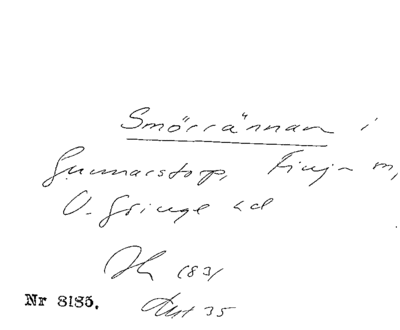 Smörrännan i
Gunnarstorp, Finja
V. Göinge hd
1831
Nr 8185. 35